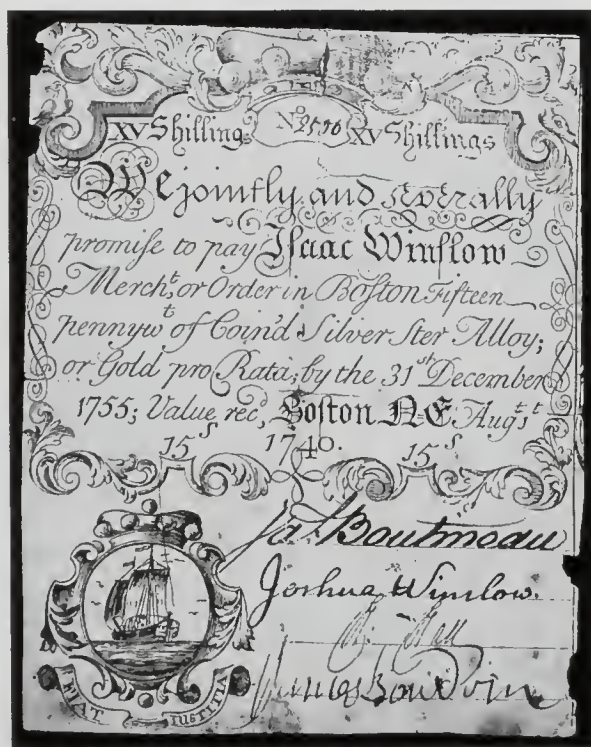 XV Shilling No 2530 XV Shillings
We jointly and severally
promise to pay Isaac Winslow
Mercht, or Order in Boston Fifteen
pennywt of Coin'd Silver Ster Alloy;
or Gold pro Rata; by the 31st December
1755; Value recd, Boston N=E Augt, 1t
15s 1740. 15s
Jas Boutineau
Joshua Winslow.
James Bowdoin
FIAT IUSTITIA